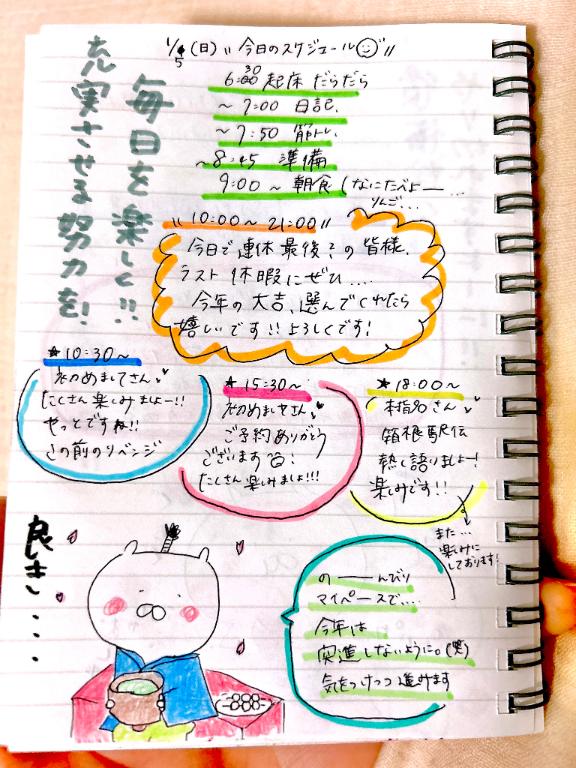 1/5(日) "今日のスケジュール"
6:30 起床 だらだら
~7:00 日記、
~7:50 筋トレ、
~8:45 準備
9:00~朝食(なにたべよー…
りんご…
毎日を楽しく!!
充実させる努力を!
"10:00~21:00"
今日で連休最後?の皆様、
ラスト休暇にぜひ....
今年の大吉、選んでくれたら
嬉しいです!!よろしくです!
★10:30~
初めましてさん♥
たくさん楽しみましょー!!
やっとですね!!
この前のリベンジ
★15:30~
初めましてさん♥
ご予約ありがとう
ございます
たくさん楽しみましょ!!!
★18:00~
本指名さん♥
箱根駅伝
熱く語りましょー!
楽しみです!!
また…
楽しみに
しております!
良き...
の――んびり
マイペースで....
今年は
突進しないように。(笑)
気をつけつつ進みます